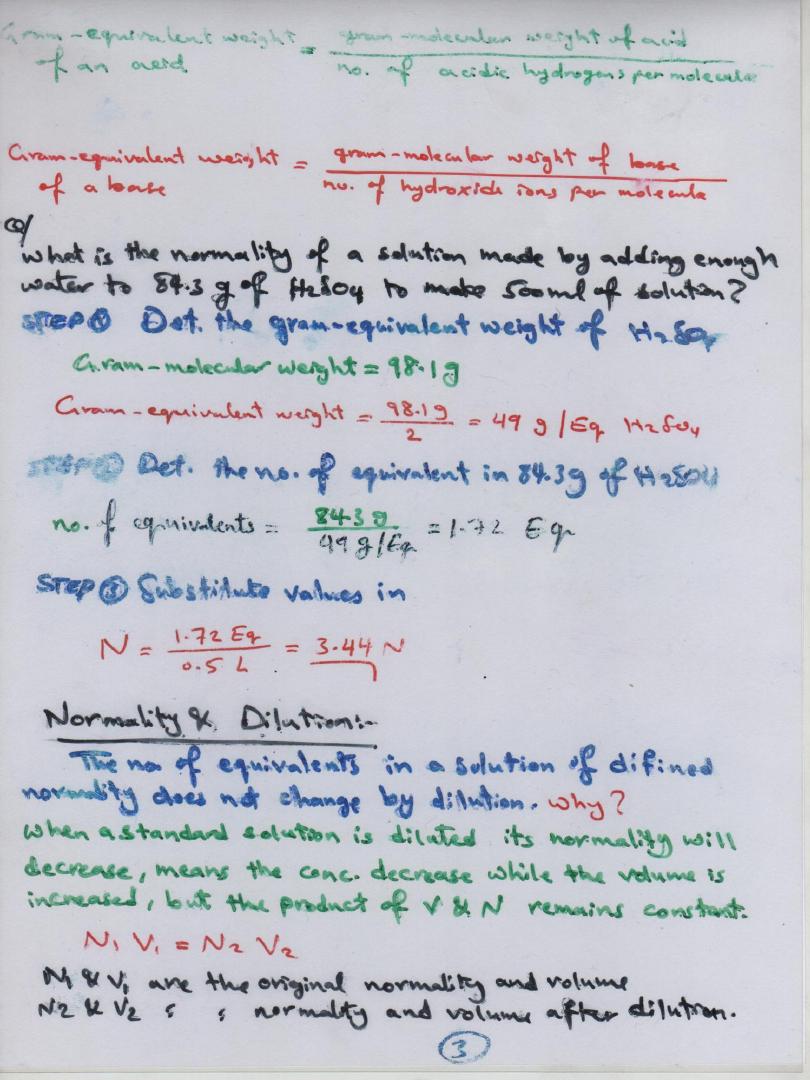 Gram-equivalent weight = gram-molecular weight of acid
of an acid no. of acidic hydrogens per molecule
Gram-equivalent weight = gram-molecular weight of base
of a base no. of hydroxide ions per molecule
Q/
What is the normality of a solution made by adding enough
water to 84.3 g of H2SO4 to make 500ml of solution?
STEP ① Det. the gram-equivalent weight of H2SO4
Gram-molecular weight = 98.1 g
Gram-equivalent weight = 98.1 g / 2 = 49 g/Eq H2SO4
STEP ② Det. the no. of equivalent in 84.3g of H2SO4
no. of equivalents = 84.3 g / 49 g/Eq = 1.72 Eq
STEP ③ Substitute values in
N = 1.72 Eq / 0.5 L = 3.44 N
Normality & Dilution:-
The no of equivalents in a solution of difined
normality does not change by dilution. Why?
When a standard solution is diluted its normality will
decrease, means the conc. decrease while the volume is
increased, but the product of V & N remains constant.
N1 V1 = N2 V2
N1 & V1 are the original normality and volume
N2 & V2 ʻ ʻ normality and volume after dilution.
3